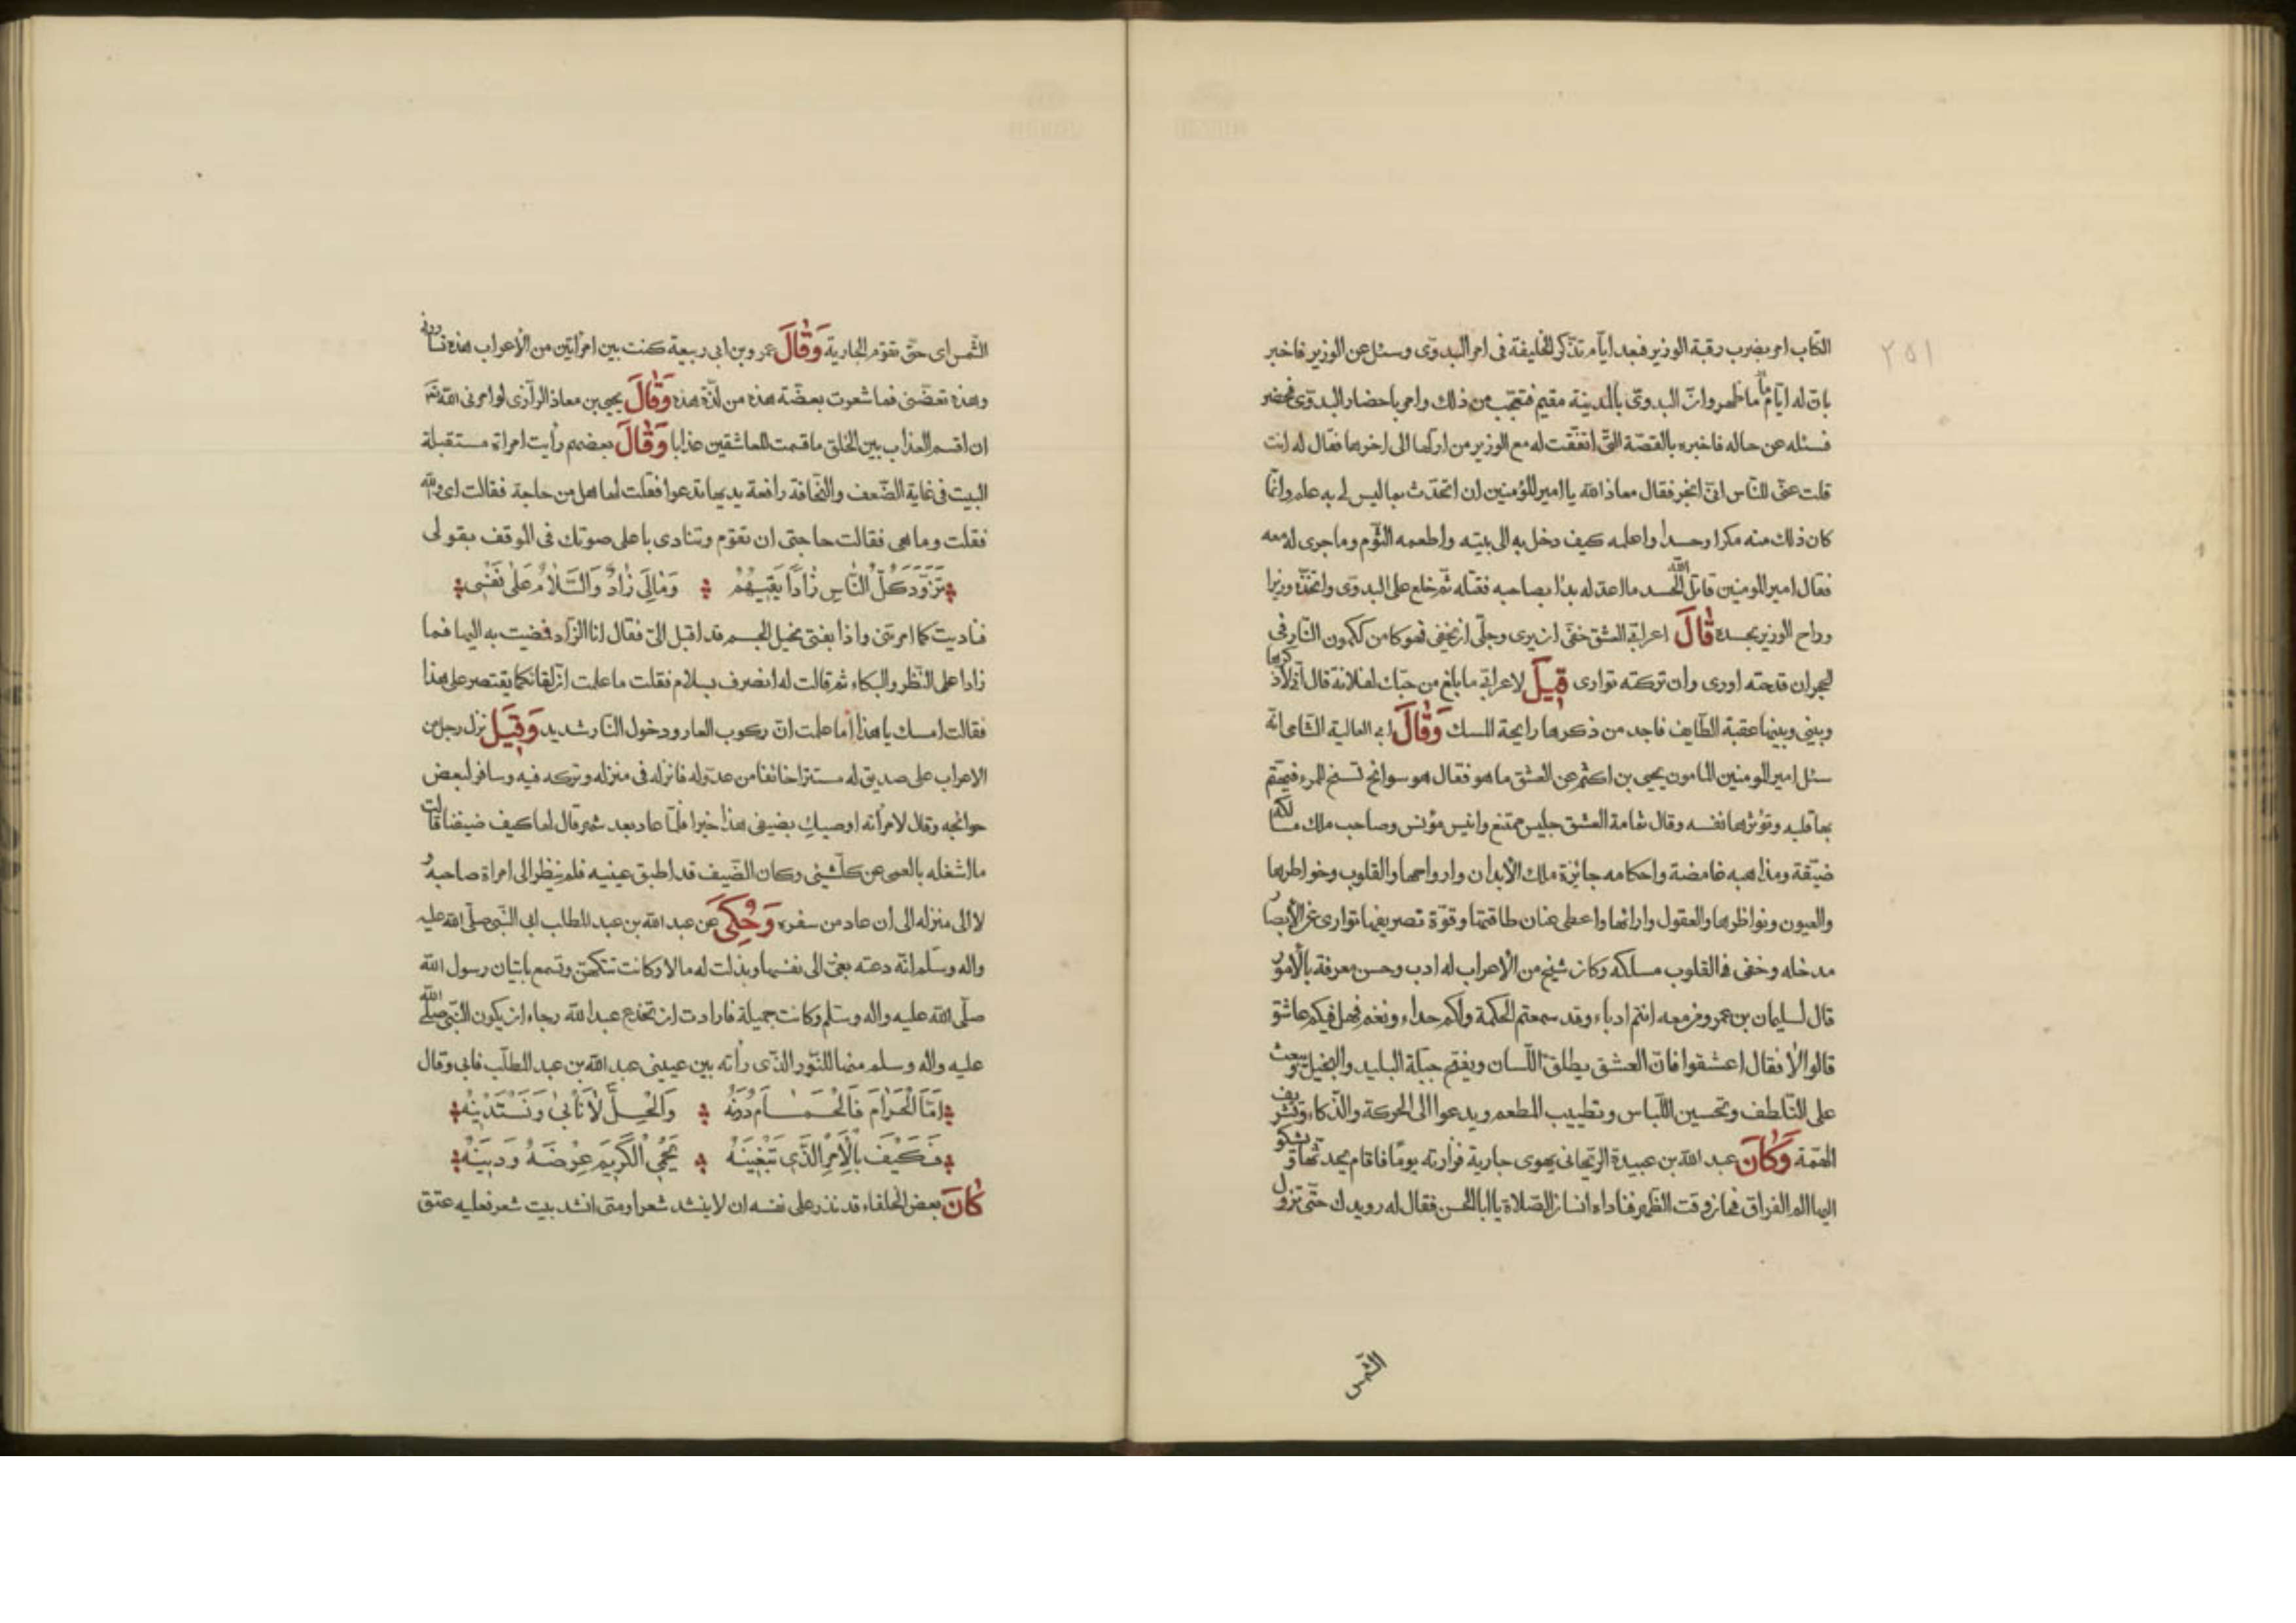 ٢٥١
الكتاب امر بضرب رقبة الوزير فبعد ايام تذكر الخليفة فى امر البدوى وسئل عن الوزير فاخبر
بان له ايام ما ظهر وان البدوى بالمدينة مقيم فتعجب من ذلك وامر باحضار البدوى فحضر
فسئله عن حاله فاخبره بالقصة التى اتفقت له مع الوزير من اولها الى اخرها فقال له انت
قلت عنى للناس انى ابخر فقال معاذ الله يا امير المؤمنين ان اتحدث بما ليس لى به علم وانما
كان ذلك منه مكرا وحسدا واعلمه كيف دخل به الى بيته واطعمه الثوم وما جرى له معه
فقال امير المومنين قاتل الله الحسد ما اعدله بدا بصاحبه فقتله ثم خلع على البدوى واتخذه وزيرا
وراح الوزير بحسده قَالَ اعرابى العشق خفى ان يرى وجلى ان يخفى فهو كامن ككمون النار فى
الحجر ان قدحته اورى وان تركته توارى قِيلَ لاعرابى ما بلغ من حبك لفلانة قال انى لاذكرها
وبينى وبينها عقبة الطايف فاجد من ذكرها رايحة المسك وَقَالَ ابى العالية الشامى انه
سئل امير المومنين المامون يحيى بن اكثم عن العشق ما هو فقال هو سوانح تسنح للمرء فيهتم
بها قلبه وتؤثرها نفسه وقال ثمامة العشق جليس ممتع وانيس مؤنس وصاحب ملك مسالكه
ضيقة ومذاهبه غامضة واحكامه جائزة ملك الأبدان وارواحها والقلوب وخواطرها
والعيون ونواظرها والعقول وارائها واعطى عنان طاقتها وقوة تصريفها توارى عن الأبصار
مدخله وخفى فى القلوب مسلكه وكان شيخ من الأعراب له ادب وحسن معرفة بالأمور
قال لسليمان بن عمرو ومن معه انتم ادباء وقد سمعتم الحكمة ولكم حداء ونغم فهل فيكم عاشق
قالوا لا فقال اعشقوا فان العشق يطلق اللسان ويفتح جبلة البليد والبخيل ويبعث
على التلطف وتحسين اللباس وتطييب المطعم ويدعوا الى الحركة والذكاء وتشريف
الهمة وَكَانَ عبد الله بن عبيدة الريحانى يهوى جارية فزارته يوما فاقام يحدثها ويشكو
اليها الم الفراق فحان وقت الظهر فناداه انسان الصلاة يا ابا الحسن فقال له رويدك حتى تزول
الشمس
الشمس اى حتى تقوم الجارية وَقَالَ عمرو بن ابى ربيعة كنت بين امرأتين من الأعراب هذه تسارنى
وهذه تعضنى فما شعرت بعضة هذه من لذة هذه وَقَالَ يحيى بن معاذ الرازى لو امرنى الله
ان اقسم العذاب بين الخلق ما قسمت للعاشقين عذابا وَقَالَ بعضهم رأيت امراة مستقبلة
البيت فى غاية الضعف والنحافة رافعة يديها تدعوا فقلت لها هل من حاجة فقالت اى والله
فقلت وما هى فقالت حاجتى ان تقوم وتنادى باعلى صوتك فى الموقف بقولى
تَزَوَّدَ كُلُّ النَّاسِ زَادًا يَقِيهُمْ وَمَالِى زَادٌ وَالسَّلَامُ عَلَى نَفْسِى
فناديت كما امرتنى واذا بفتى نحيل الجسم قد اقبل الى فقال انا الزاد فمضيت به اليها فما
زادا على النظر والبكاء ثم قالت له انصرف بسلام فقلت ما علمت ان لقائكما يقتصر على هذا
فقالت امسك يا هذا أما علمت ان ركوب العار ودخول النار شديد وَقِيلَ نزل رجل من
الاعراب على صديق له مستترا خائفا من عدو له فانزله فى منزله وتركه فيه وسافر لبعض
حوائجه وقال لامرأته اوصيك بضيفى هذا خيرا فلما عاد بعد شهر قال لها كيف ضيفنا قالت
ما اشغله بالعمى عن كلشيئ وكان الضيف قد اطبق عينيه فلم ينظر الى امراة صاحبه و
لا الى منزله الى ان عاد من سفره وَحُكِىَ عن عبد الله بن عبد المطلب ابى النبى صلى الله عليه
واله وسلم انه دعته بغى الى نفسها وبذلت له مالا وكانت تتكهن وتسمع باتيان رسول الله
صلى الله عليه واله وسلم وكانت جميلة فارادت ان تخدع عبد الله رجاء ان يكون النبى صلى الله
عليه واله وسلم منها للنور الذى رأته بين عينى عبد الله بن عبد المطلب فابى وقال
اَمَّا الْحَرَامَ فَالْحَمَامُ دُونَهُ وَالْحِلُّ لَا نَأْبَى وَنَسْتَدِينُهُ
فَكَيْفَ بِالْاَمْرِ الَّذِى تَبْغِينَهُ يَحْمِى الْكَرِيمُ عِرْضَهُ وَدِينَهُ
كَانَ بعض الخلفاء قد نذر على نفسه ان لا ينشد شعرا ومتى انشد بيت شعر فعليه عتق